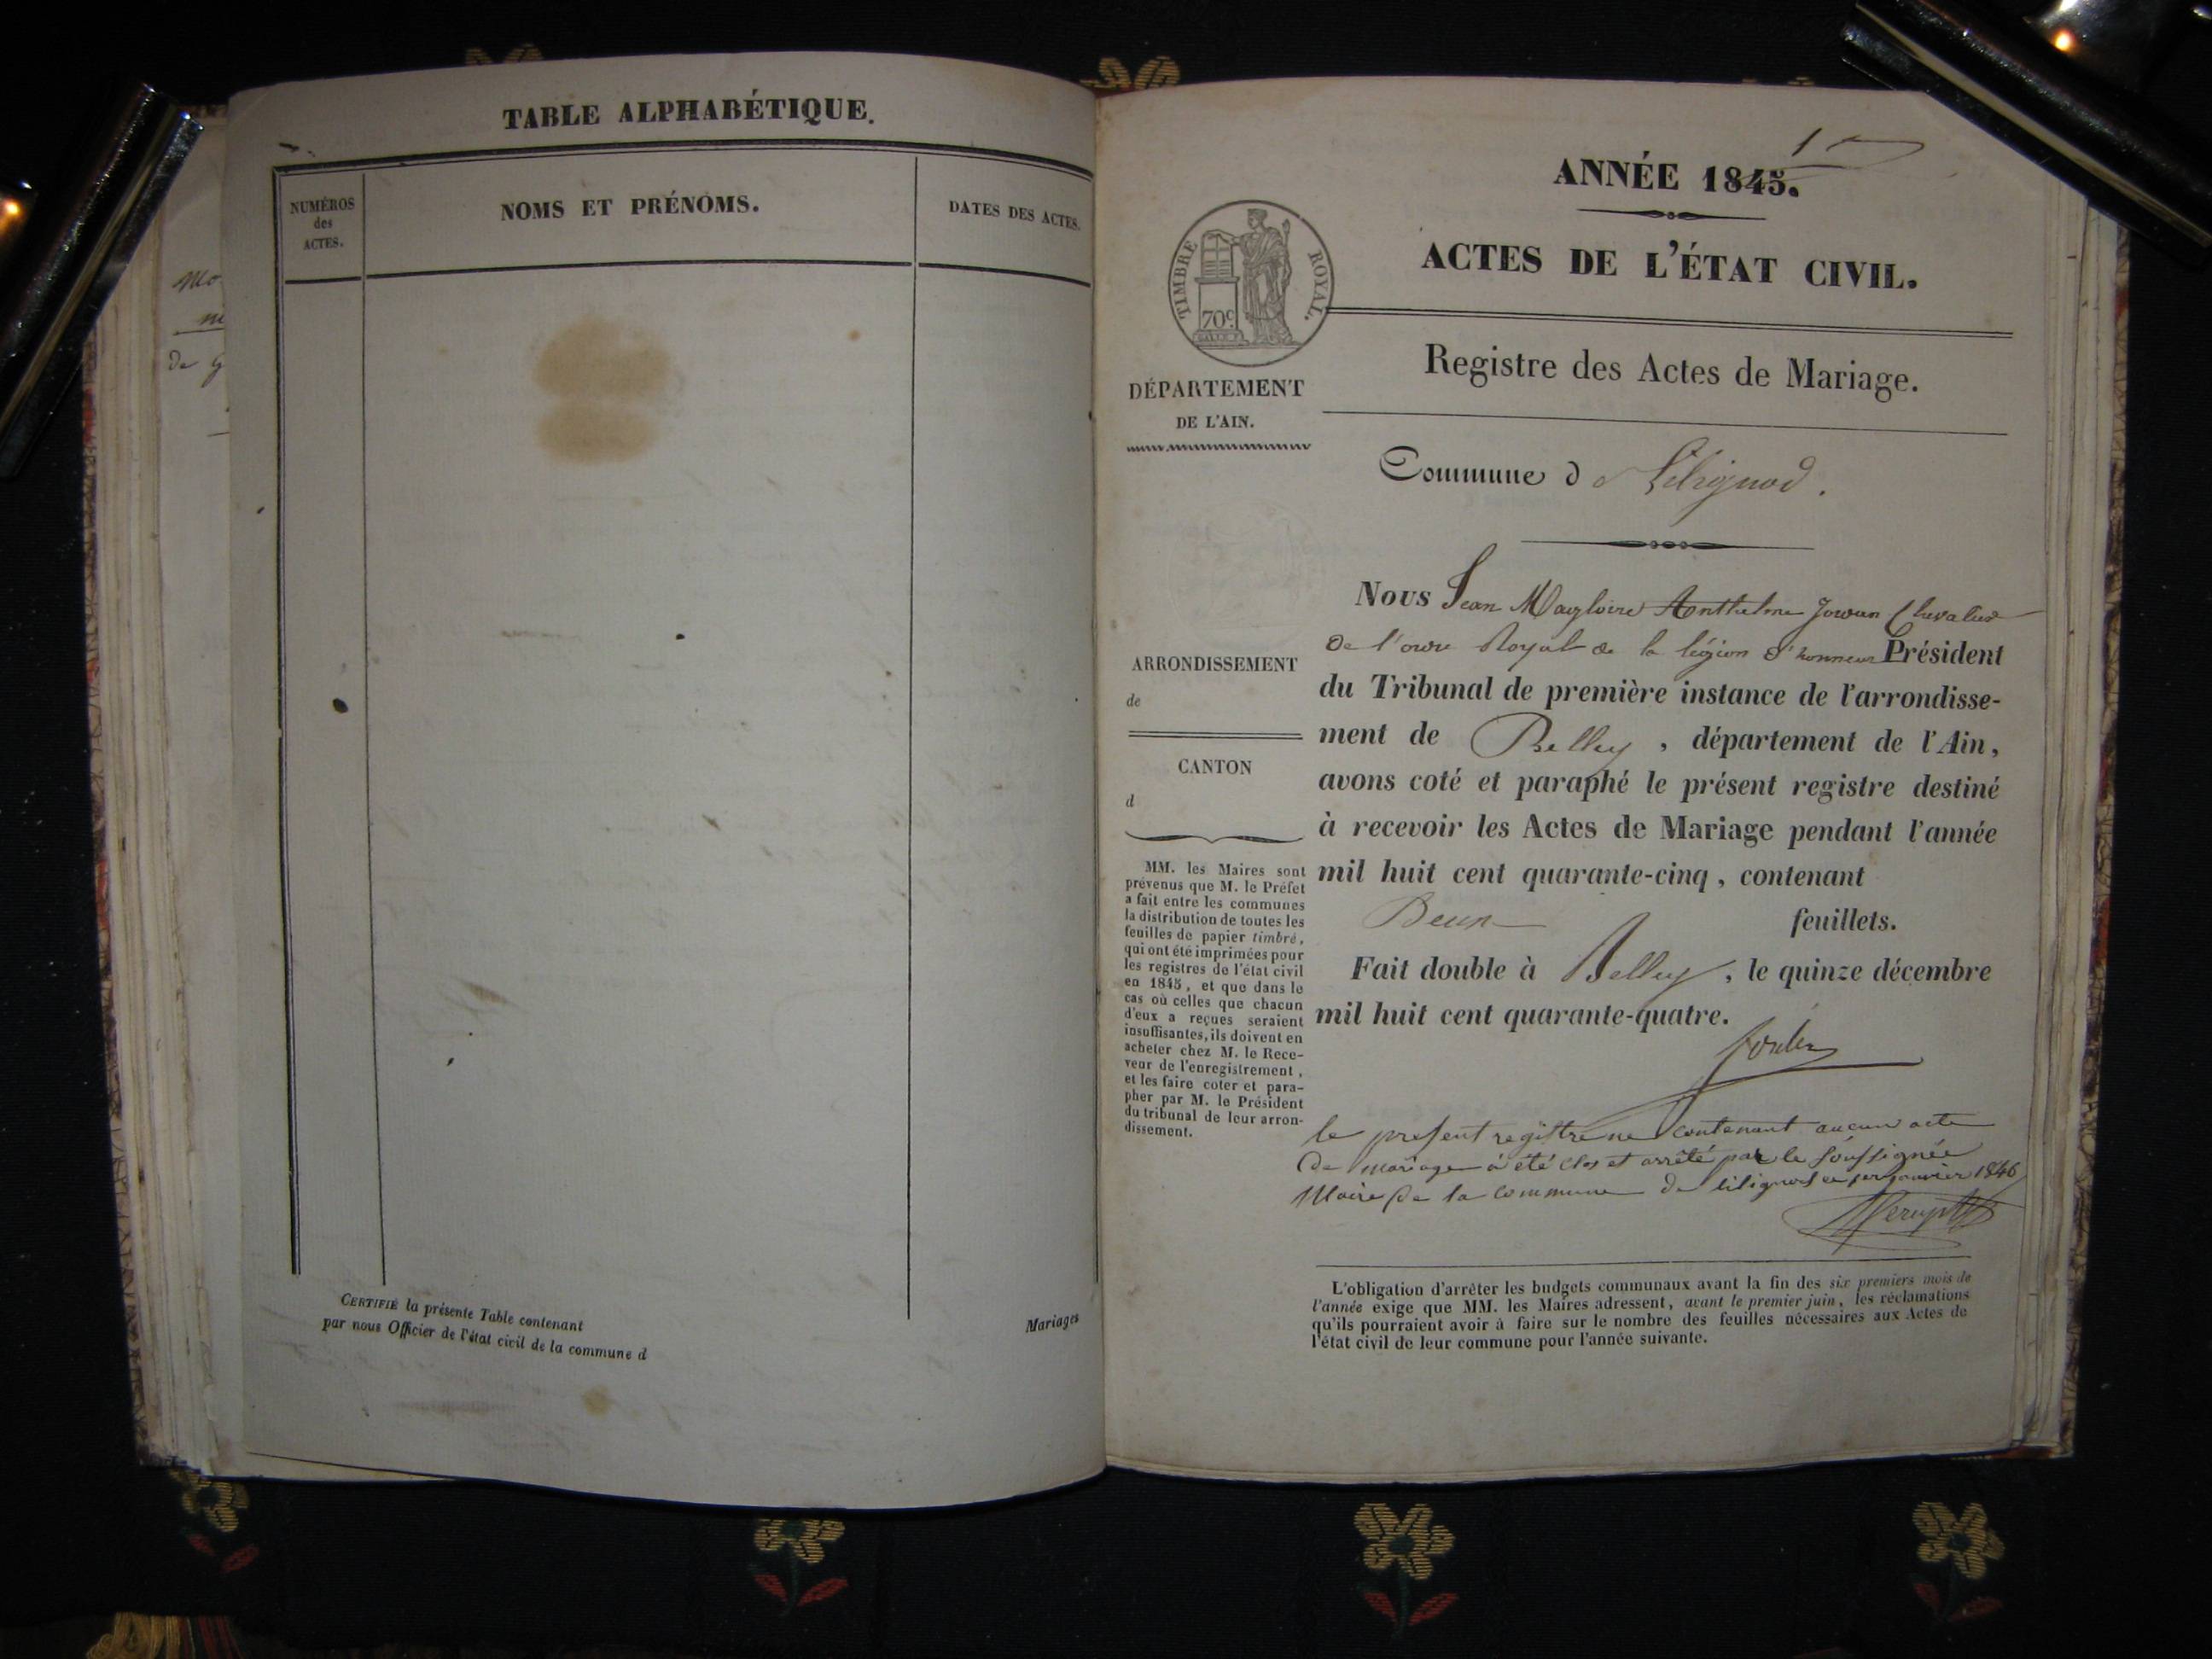 TABLE ALPHABÉTIQUE.
NUMÉROS
des
ACTES.
NOMS ET PRÉNOMS.
DATES DES ACTES.
Mo
de
CERTIFIÉ la présente Table contenant
Mariages
par nous Officier de l'état civil de la commune d
1
ANNÉE 1845.
ACTES DE L'ÉTAT CIVIL.
TIMBRE ROYAL.
70c
Registre des Actes de Mariage.
DÉPARTEMENT
DE L'AIN.
Commune d
Nous Jean Magloire Anthelme Chevalier
De l'ordre Royal de la légion d'honneur Président
du Tribunal de première instance de l'arrondisse-
ment de Belley, département de l'Ain,
avons coté et paraphé le présent registre destiné
à recevoir les Actes de Mariage pendant l'année
mil huit cent quarante-cinq, contenant
Deux feuillets.
Fait double à Belley, le quinze décembre
mil huit cent quarante-quatre.
ARRONDISSEMENT
de
CANTON
d
MM. les Maires sont
prévenus que M. le Préfet
a fait entre les communes
la distribution de toutes les
feuilles de papier timbré,
qui ont été imprimées pour
les registres de l'état civil
en 1845, et que dans le
cas où celles que chacun
d'eux a reçues seraient
insuffisantes, ils doivent en
acheter chez M. le Rece-
veur de l'enregistrement,
et les faire coter et para-
pher par M. le Président
du tribunal de leur arron-
dissement.
le present registre ne contenant aucun acte
De mariage à été clos et arrêté par le soussignée
Maire de la commune de lilignod ce 1er janvier 1846
L'obligation d'arrêter les budgets communaux avant la fin des six premiers mois de
l'année exige que MM. les Maires adressent, avant le premier juin, les réclamations
qu'ils pourraient avoir à faire sur le nombre des feuilles nécessaires aux Actes de
l'état civil de leur commune pour l'année suivante.